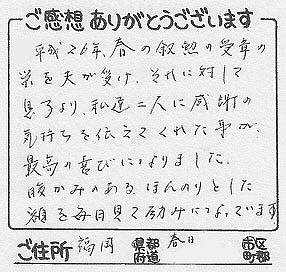 ご感想ありがとうございます
平成26年、春の叙勲の受章の
栄を夫が受け、それに対して
息子より、私達二人に感謝の
気持ちを伝えてくれた事が、
最高の喜びになりました。
暖かみのあるほんのりとした
額を毎日見て励みになっています
ご住所 福岡 県都府道 春日 市区町郡